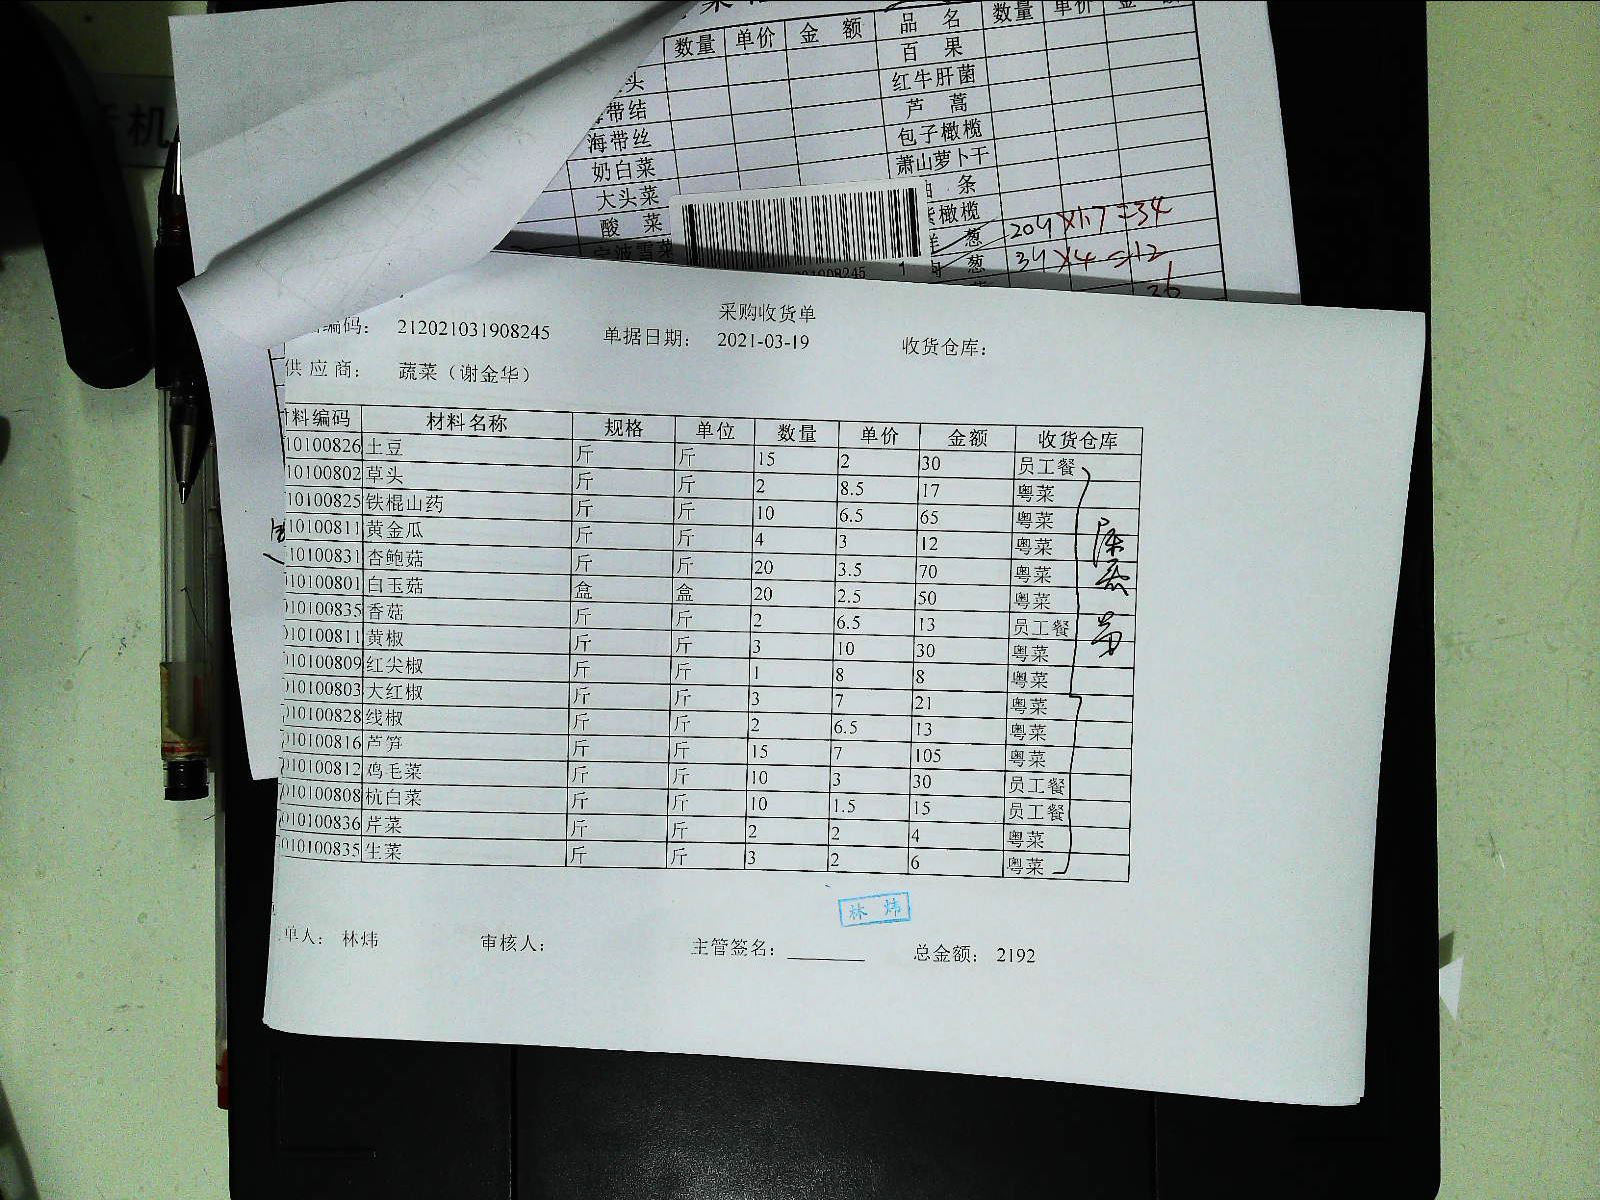 数量 单价 金 额 品 名 数量 单价
百 果
头 红牛肝菌
带结 芦 蒿
海带丝 包子橄榄
奶白菜 萧山萝卜干
大头菜 条
酸 菜 橄榄
葱 204×1.7=34
葱 34×4=12
36
机
采购收货单
编码： 212021031908245 单据日期： 2021-03-19 收货仓库：
供 应 商： 蔬菜（谢金华）
料编码 材料名称 规格 单位 数量 单价 金额 收货仓库
10100826 土豆 斤 斤 15 2 30 员工餐
10100802 草头 斤 斤 2 8.5 17 粤菜
10100825 铁棍山药 斤 斤 10 6.5 65 粤菜
10100811 黄金瓜 斤 斤 4 3 12 粤菜
10100831 杏鲍菇 斤 斤 20 3.5 70 粤菜
10100801 白玉菇 盒 盒 20 2.5 50 粤菜
10100835 香菇 斤 斤 2 6.5 13 员工餐
10100811 黄椒 斤 斤 3 10 30 粤菜
10100809 红尖椒 斤 斤 1 8 8 粤菜
10100803 大红椒 斤 斤 3 7 21 粤菜
10100828 线椒 斤 斤 2 6.5 13 粤菜
10100816 芦笋 斤 斤 15 7 105 粤菜
10100812 鸡毛菜 斤 斤 10 3 30 员工餐
010100808 杭白菜 斤 斤 10 1.5 15 员工餐
010100836 芹菜 斤 斤 2 2 4 粤菜
010100835 生菜 斤 斤 3 2 6 粤菜
林 炜
单人： 林炜 审核人： 主管签名： 总金额： 2192